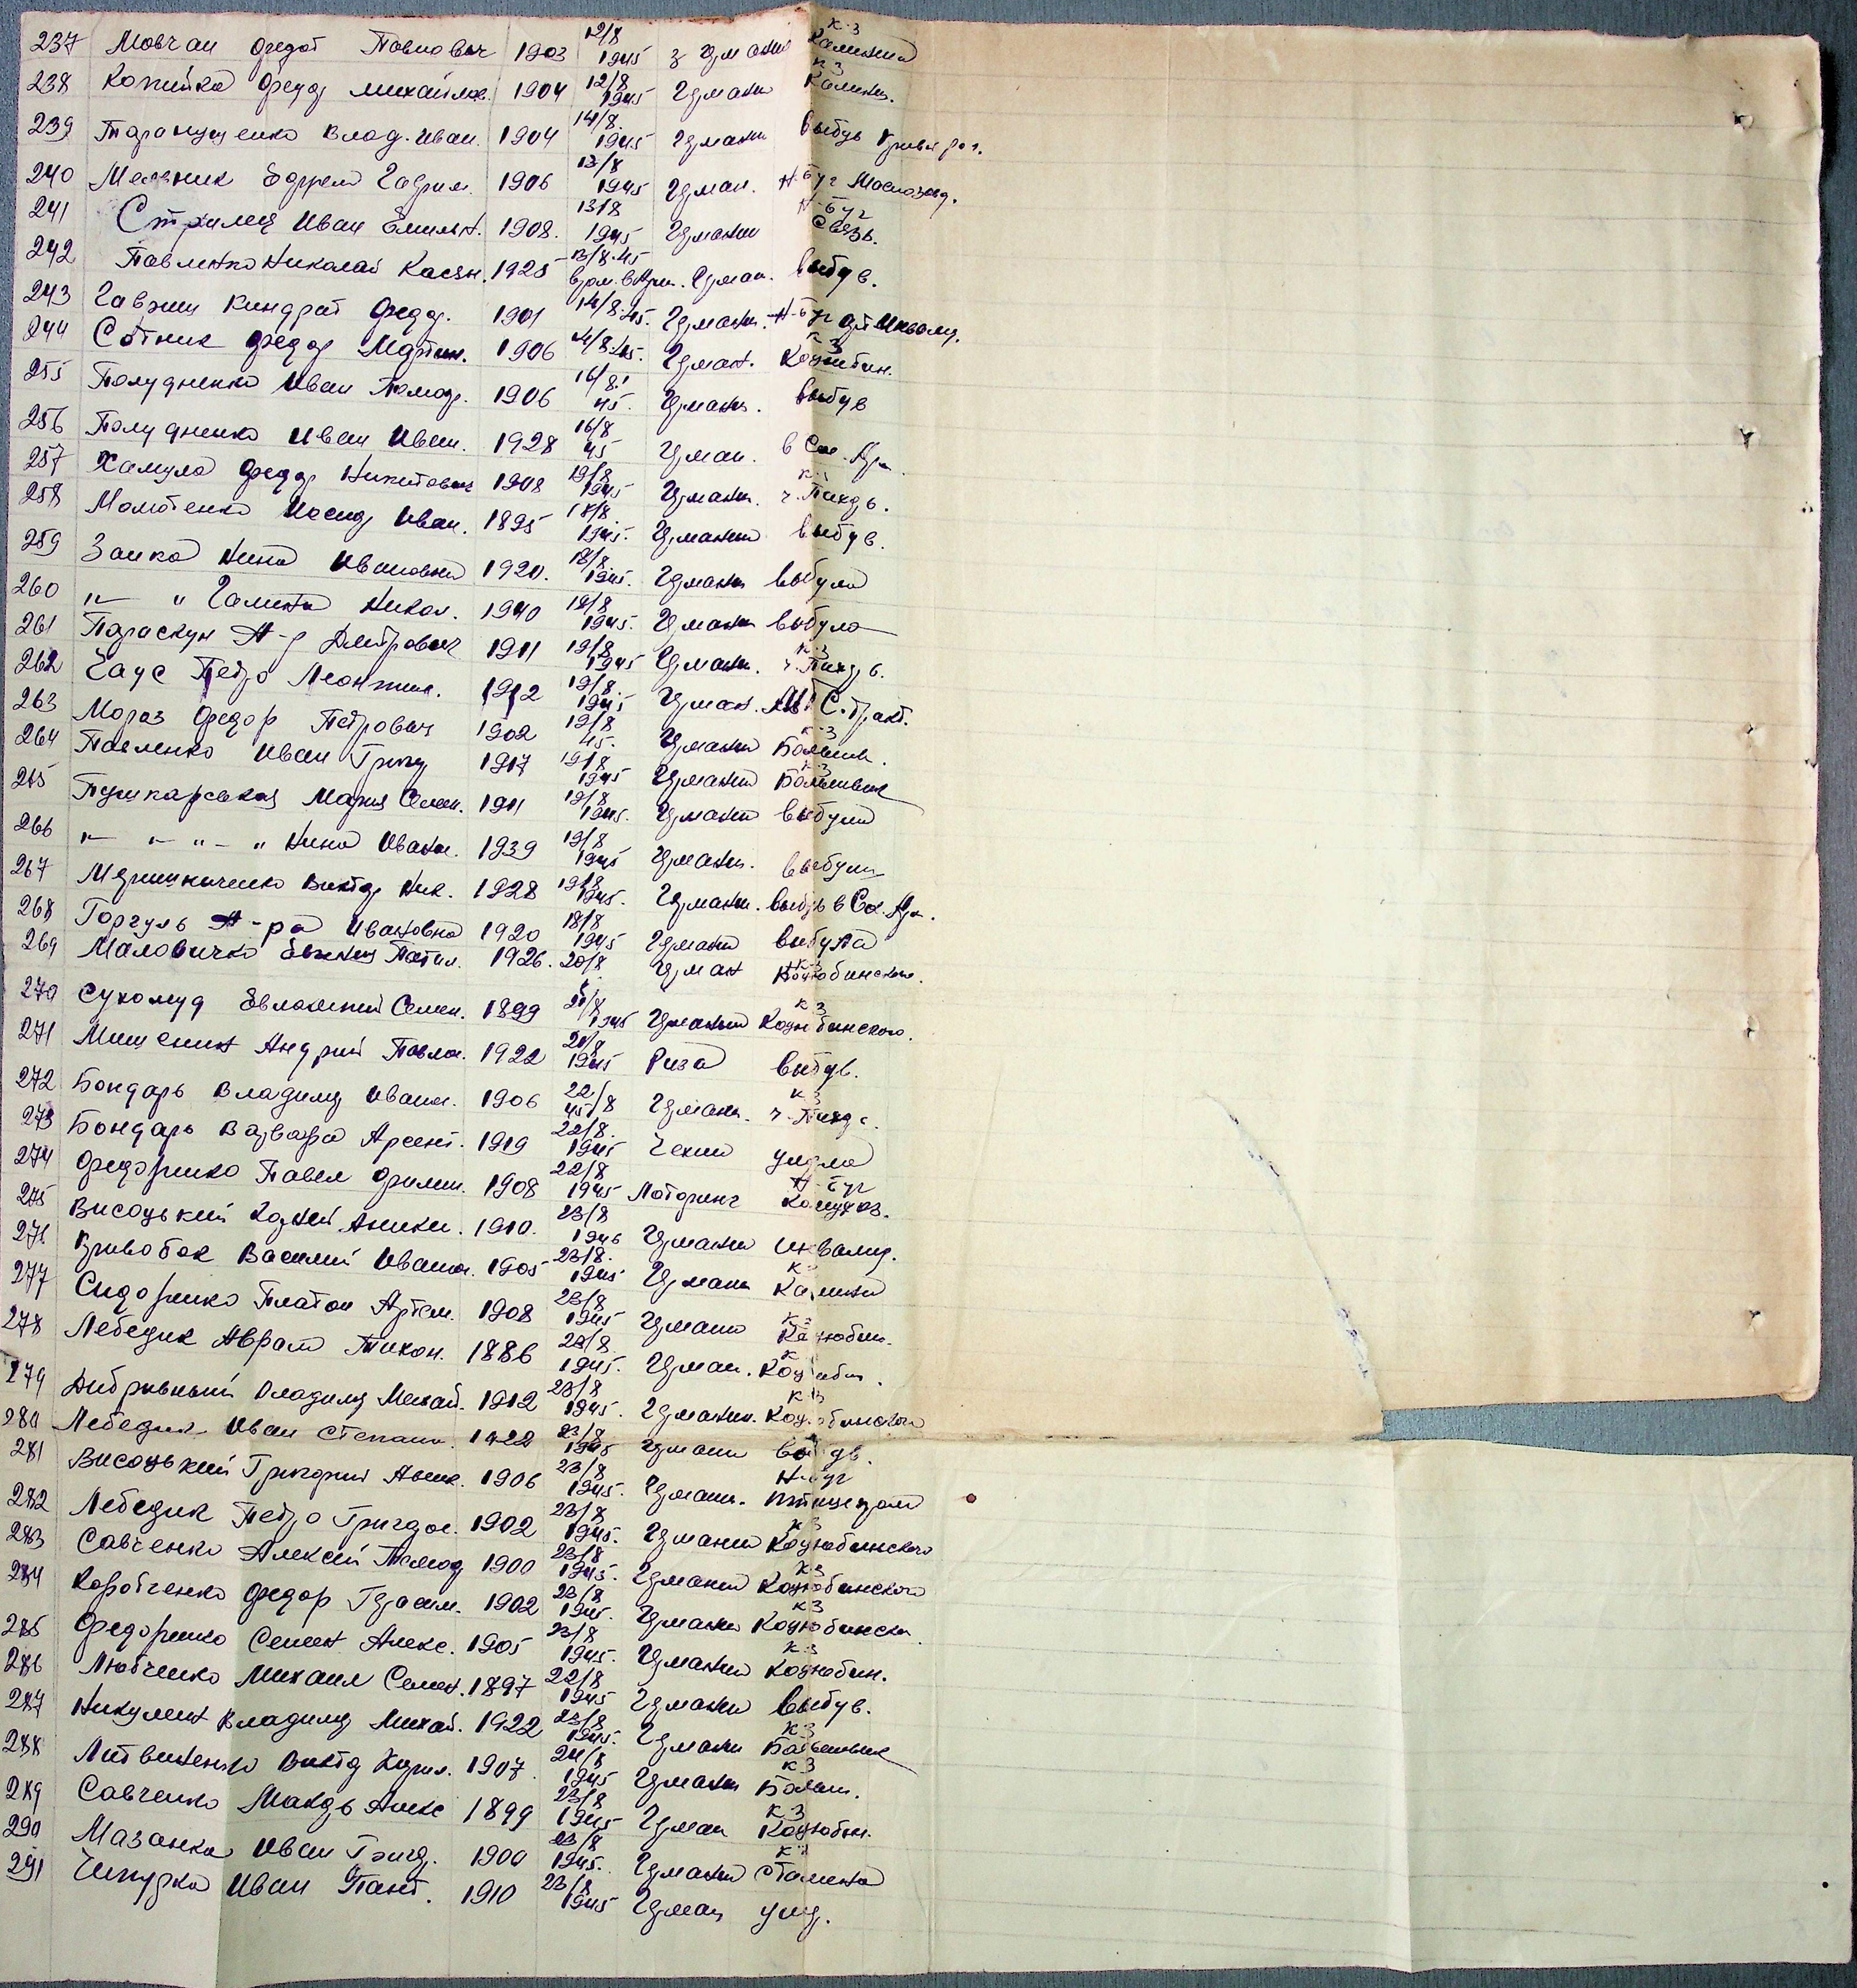 237 Мовчан Федот Павлович 1903 12/8 1945 з Германии к-з Калинина
238 Копийка Федор Михайлов. 1904 12/8 1945 Германи к-з Калинин.
239 Таранущенко Влад. Иван. 1904 14/8 1945 Германи выбув Кривый рог.
240 Мельник Ефрем Гаврил. 1906 13/8 1945 Герман. Н-Буг Маслозавод.
241 Стрилец Иван Емельян. 1908. 13/8 1945 Германи Н-Буг Связь.
242 Павленко Николай Касян. 1925 13/8.45 Герман. выбув.
243 Гавриш Киндрат Федор. 1901 14/8.45. Германи. Н-Буг арт. Инвалид.
244 Сотник Федор Мартин. 1906 14/8.45. Герман. к-з Коцюбин.
255 Полудненко Иван 1906 16/8. 45. Германи. выбув
256 Полудненко Иван Иван. 1928 16/8 45 Герман. в Сов. Арм.
257 Хамула Федор Никитович 1908 19/8 1945 Германи. к-з
258 Молотенко Иосип Иван. 1895 18/8. 1945. Германии выбув.
259 Заика Нина Ивановна 1920. 18/8. 1945. Германи выбула
260 "— " Галина Никол. 1940 19/8 1945. Германи выбула
261 Параскун А-р Дмитрович 1911 19/8 1945 Германи. к-з
262 Гаус Петро Леонтии. 1912 19/8. 1945 Герман.
263 Мороз Федор Петрович 1902 19/8 45. Германи к-з Больш.
264 Павленко Иван Григ 1917 19/8 1945 Германии к-з Большевик
265 Пушкарськая Мария Семен. 1911 19/8 1945. Германи выбули
266 "— "— " — " Нина Иванов. 1939 19/8 1945 Германи. выбули
267 Виктор Ник. 1928 19/8 1945. Германи. выбув в Сов. Арм.
268 Горгуль А-ра Ивановна 1920 18/8 1945 Германи выбула
269 Маловичко Евгения 1926. 20/8 Герман к-з Коцюбинского.
270 Сухомуд Евлампий Семен. 1899 21/8 1945 Германии к-з Коцюбинского.
271 Мишенин Андрий Павлов. 1922 21/8 1945 Рига выбув.
272 Бондарь Владимир Иванов. 1906 22/8 45 Герман. к-з
273 Бондарь Варвара Арсент. 1919 22/8. 1945 Чехии умерла
274 Федоренко Павел Филип. 1908 22/8 1945 Лотаринг Н-Буг
275 Висоцький 1910. 23/8 1946 Германи инвалид.
276 Кривобок Василий Иванов. 1905 23/8. 1945 Германи к-з Калинина
277 Сидоренко Платон Артем. 1908 23/8 1945 Германи к-з Коцюбин.
278 Лебедик Аврам Тихон. 1886 23/8 1945. Герман. к-з Коцюбин.
279 Дибривный Владимир Михай. 1912 23/8 1945. Германии. к-з Коцюбинского
280 Лебедик Иван Степанов. 1922 23/8 1945 Германи выбув.
281 Висоцький Григорий Аник. 1906 23/8 1945. Германи. Н-Буг птицепром
282 Лебедик Петро Григор. 1902 23/8 1945. Германи к-з Коцюбинского
283 Савченко Алексей 1900 23/8 1945. Германии к-з Коцюбинского
284 Коротченко Федор Герасим. 1902 23/8 1945. Германи к-з Коцюбинск
285 Федоренко Семен Алекс. 1905 23/8 1945. Германии к-з Коцюбин.
286 Любченко Михаил Семен. 1897 22/8 1945 Германи выбув.
287 Никулин Владимир Михай. 1922 23/8 1945. Германи к-з Большевик
288 Литвиненко Виктор Кирил. 1907. 24/8 1945 Германи к-з Больш.
289 Савченко Макар Алекс 1899 23/8 1945 Герман к-з Коцюбин.
290 Мазанка Иван Григ. 1900 23/8 1945. Германи к-з Сталина
291 Чепурка Иван Пант. 1910 23/8 1945 Герман умер.